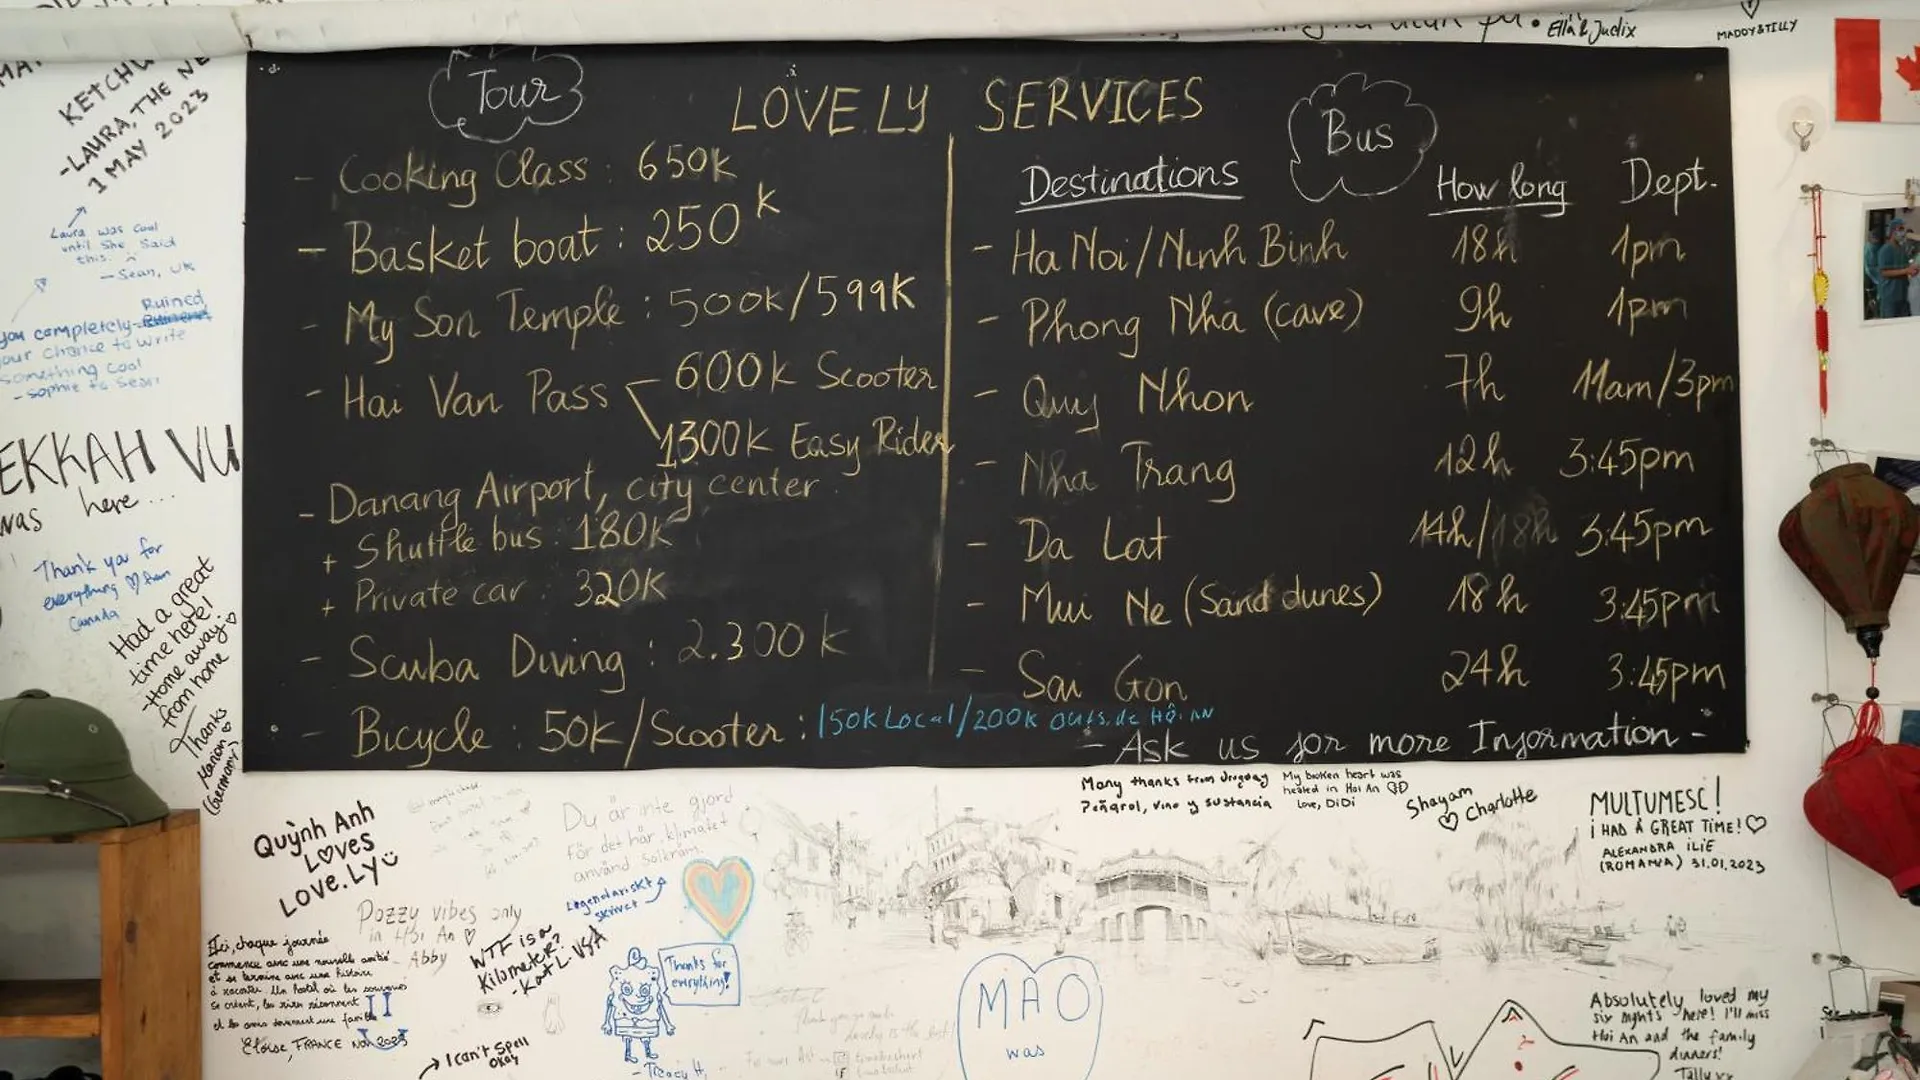 Ella & Judix
MADDY & TILLY
KETCHU
-LAURA, THE NE
1 MAY 2023
Laura was cool
until she said
this.
- Sean, UK
Ruined
you completely
your chance to write
something cool
- sophie to Sean
EKKAH VU
was here ...
Thank you for
everything
Canada
Had a great
time here!
Home away
from home
Thanks
(Germany)
Tour
LOVE.LY SERVICES
- Cooking Class : 650k
- Basket boat : 250k
- My Son Temple : 500k/599K
- Hai Van Pass
600k Scooter
1300k Easy Rider
- Danang Airport, city center
+ Shuttle bus : 180k
+ Private car : 320k
- Scuba Diving : 2.300k
- Bicycle : 50k/Scooter : 150k Local/200k outside Hội An
Bus
Destinations How long Dept.
- Ha Noi/Ninh Binh 18h 1pm
- Phong Nha (cave) 9h 1pm
- Quy Nhon 7h 11am/3pm
- Nha Trang 12h 3:45pm
- Da Lat 14h/18h 3:45pm
- Mui Ne (Sand dunes) 18h 3:45pm
- Sai Gon 24h 3:45pm
- Ask us for more Information -
Quỳnh Anh
Loves
LOVE.LY
Du är inte gjord
för det här klimatet
använd solkräm.
Legendariskt
skrivet
Many thanks from Uruguay
Peñarol, vino y sustancia
My broken heart was
healed in Hoi An
Love, DiDi
Shayam
Charlotte
MULTUMESC!
I HAD A GREAT TIME!
ALEXANDRA ILIE
(ROMANIA) 31.01.2023
Pozzy vibes only
in Hoi An
- Abby
WTF is a
Kilometer?
- Kat L. USA
Ici, chaque journée
commence avec une nouvelle amitié
et se termine avec une histoire
à raconter. Un hostel où les souvenirs
se créent, les rires résonnent
et les amis deviennent une famille
Eloïse, FRANCE Nov 2023
I can't spell
okay
Thanks for
everything!
- Tracy H,
MAO
was
Absolutely loved my
six nights here! I'll miss
Hoi An and the family
dinners!
Tally xx